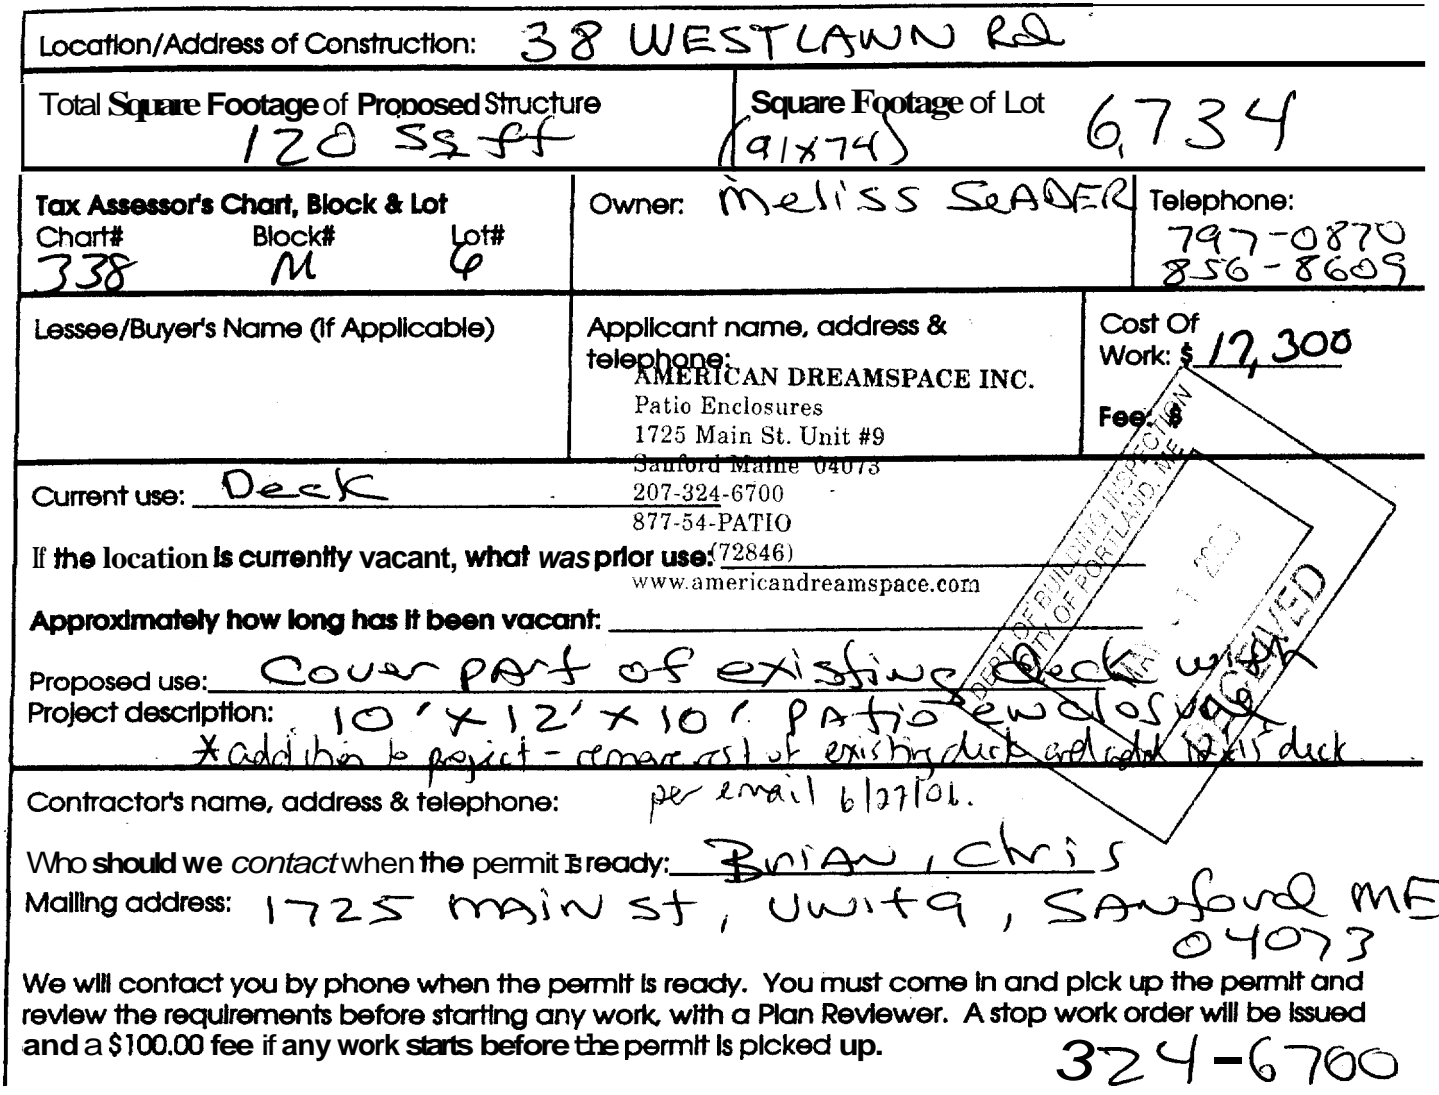 Location/Address of Construction: 38 WESTLAWN Rd
Total Square Footage of Proposed Structure
120 Sq ft
Square Footage of Lot 6,734
(91x74)
Tax Assessor's Chart, Block & Lot
Chart# Block# Lot#
338 M 6
Owner: Meliss SeADER
Telephone:
797-0870
856-8609
Lessee/Buyer's Name (If Applicable)
Applicant name, address &
telephone:
AMERICAN DREAMSPACE INC.
Patio Enclosures
1725 Main St. Unit #9
Sanford Maine 04073
207-324-6700
877-54-PATIO
(72846)
www.americandreamspace.com
Cost Of
Work: $ 17,300
Fee: $
Current use: Deck
If the location is currently vacant, what was prior use:
Approximately how long has it been vacant:
Proposed use: Cover part of existing deck with
Project description: 10' x 12' x 10' PAtio enclosure
* addition to project - remove rest of existing deck and add 12x15 deck
per email 6/27/06.
DEPT. OF BUILDING INSPECTION
CITY OF PORTLAND, ME
MAY
RECEIVED
Contractor's name, address & telephone:
Who should we contact when the permit is ready: BriAN, Chris
Mailing address: 1725 MAIN St, Unit 9, SANford ME
04073
We will contact you by phone when the permit is ready. You must come in and pick up the permit and
review the requirements before starting any work, with a Plan Reviewer. A stop work order will be issued
and a $100.00 fee if any work starts before the permit is picked up.
324-6700